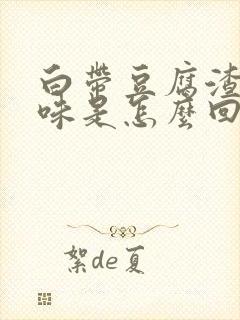 白带豆腐渣
味是怎么回
絮de夏